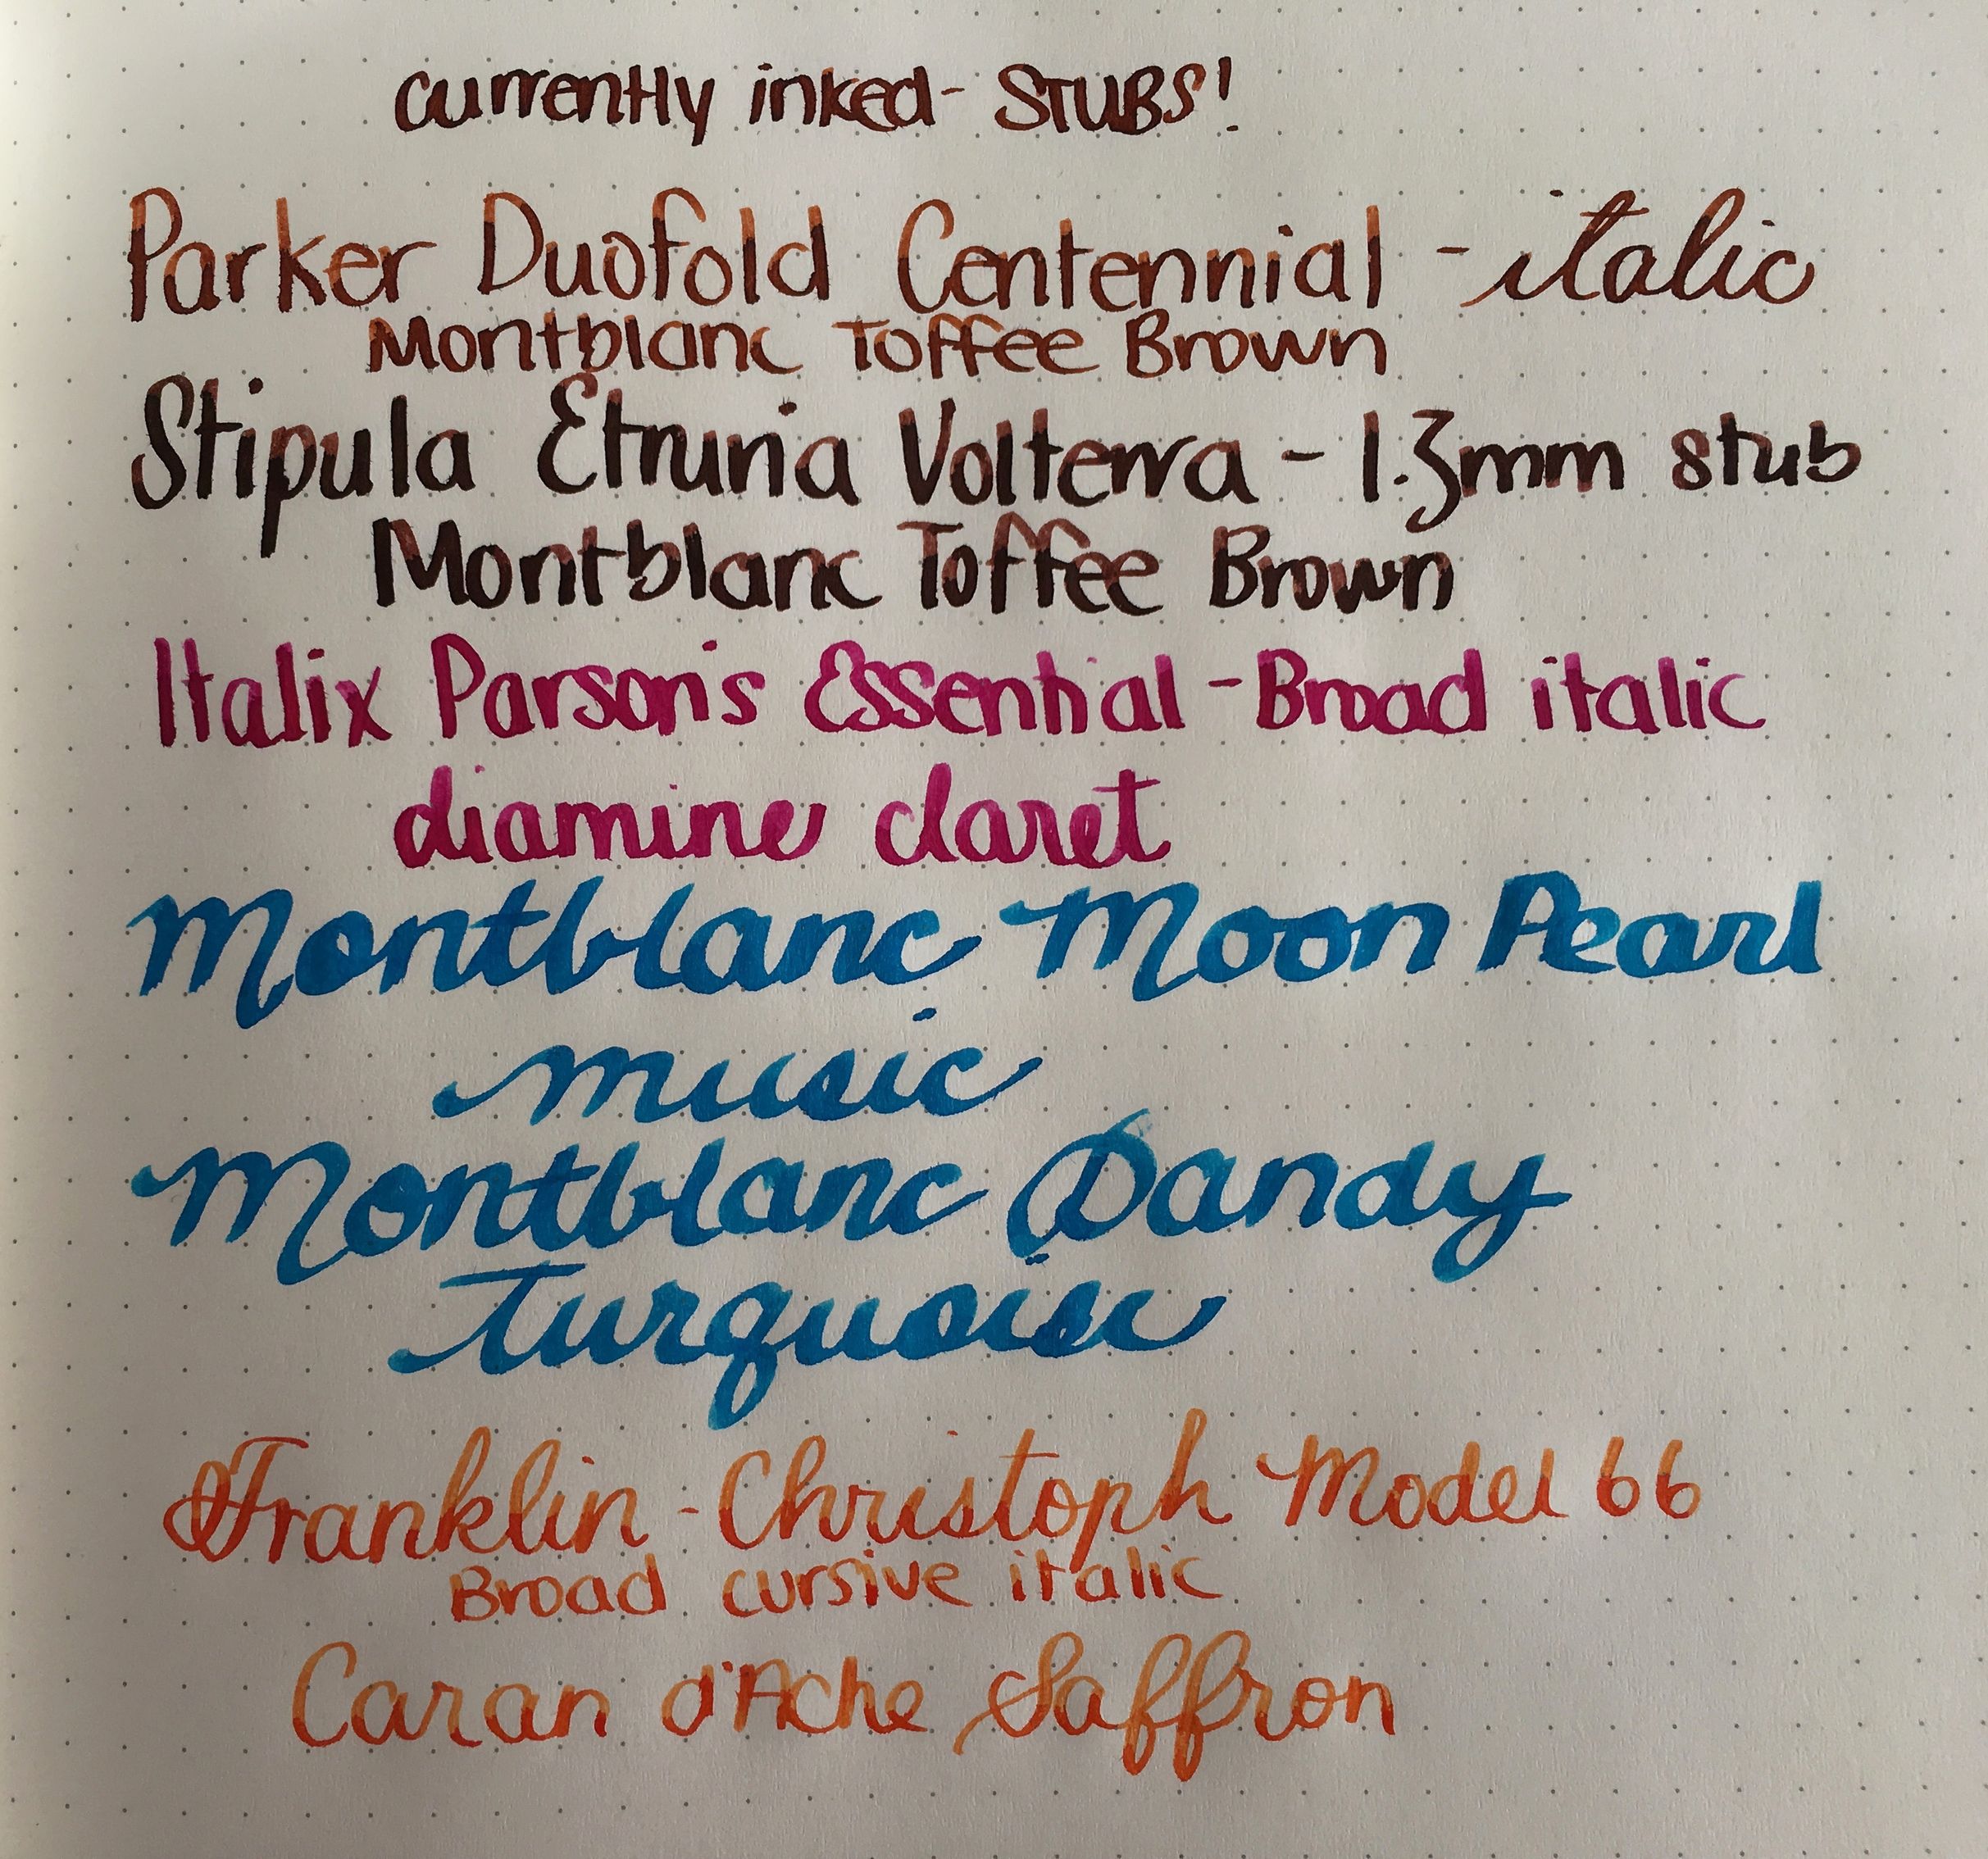 currently inked - STUBS!
Parker Duofold Centennial - italic
Montblanc Toffee Brown
Stipula Etruria Volterra - 1.3mm stub
Montblanc Toffee Brown
Italix Parson's Essential - Broad italic
diamine claret
Montblanc Moon Pearl
music
Montblanc Dandy
Turquoise
Franklin-Christoph Model 66
Broad cursive italic
Caran d'Ache Saffron